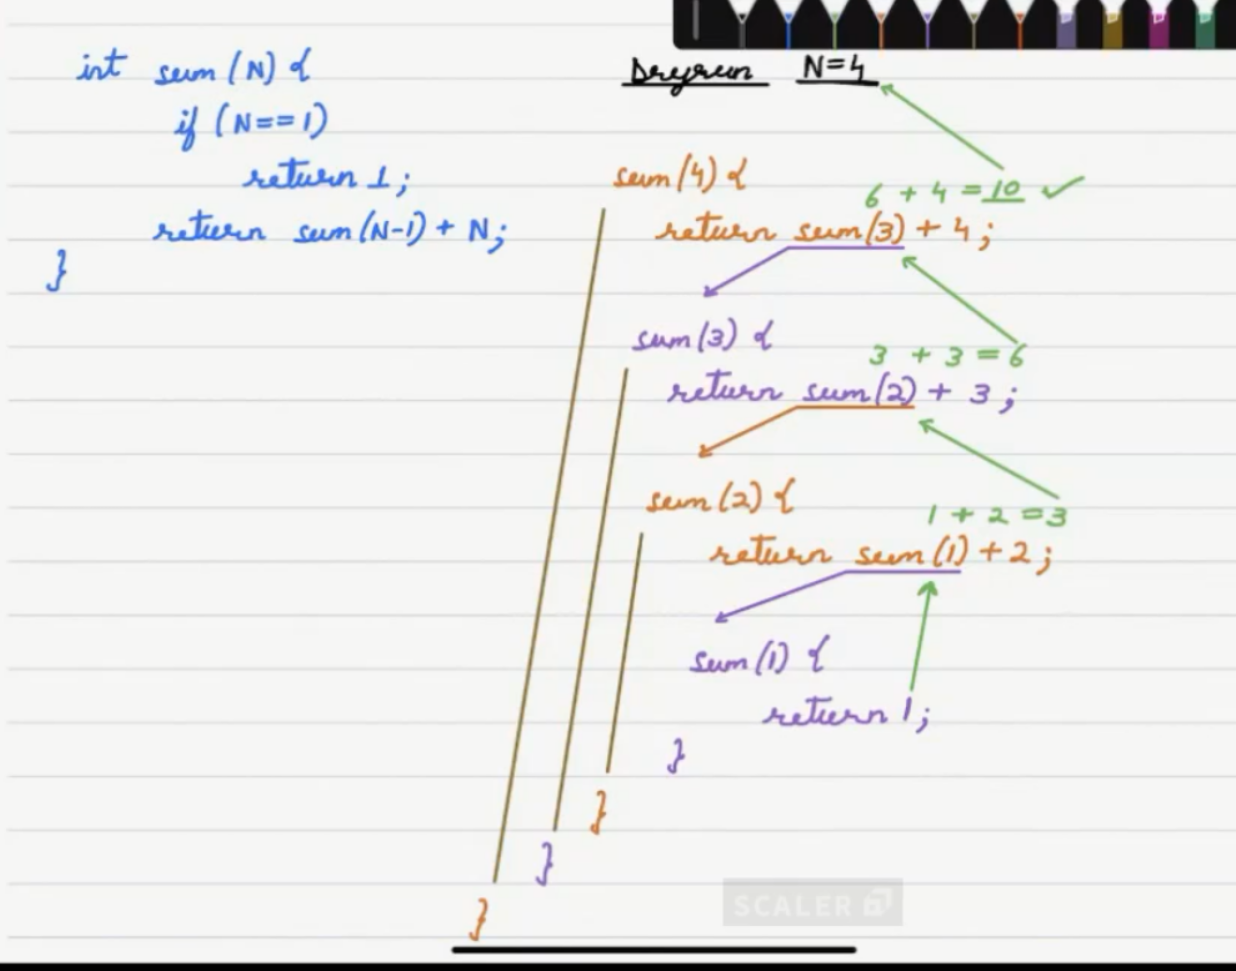 int sum(N) {
if (N==1)
return 1;
return sum(N-1) + N;
}
Dryrun N=4
sum(4) {
6 + 4 = 10 ✓
return sum(3) + 4;
sum(3) {
3 + 3 = 6
return sum(2) + 3;
sum(2) {
1 + 2 = 3
return sum(1) + 2;
sum(1) {
return 1;
}
}
}
}
SCALER